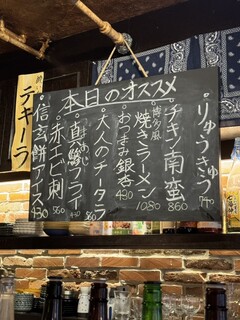 本日のオススメ
・りゅうきゅう 740
・チキン南蛮 860
・博多風焼きラーメン 1080
・おつまみ銀杏 490
・大人のチータラ
・真鯵フライ
・赤エビ刺
・信玄餅アイス 430
テキーラ